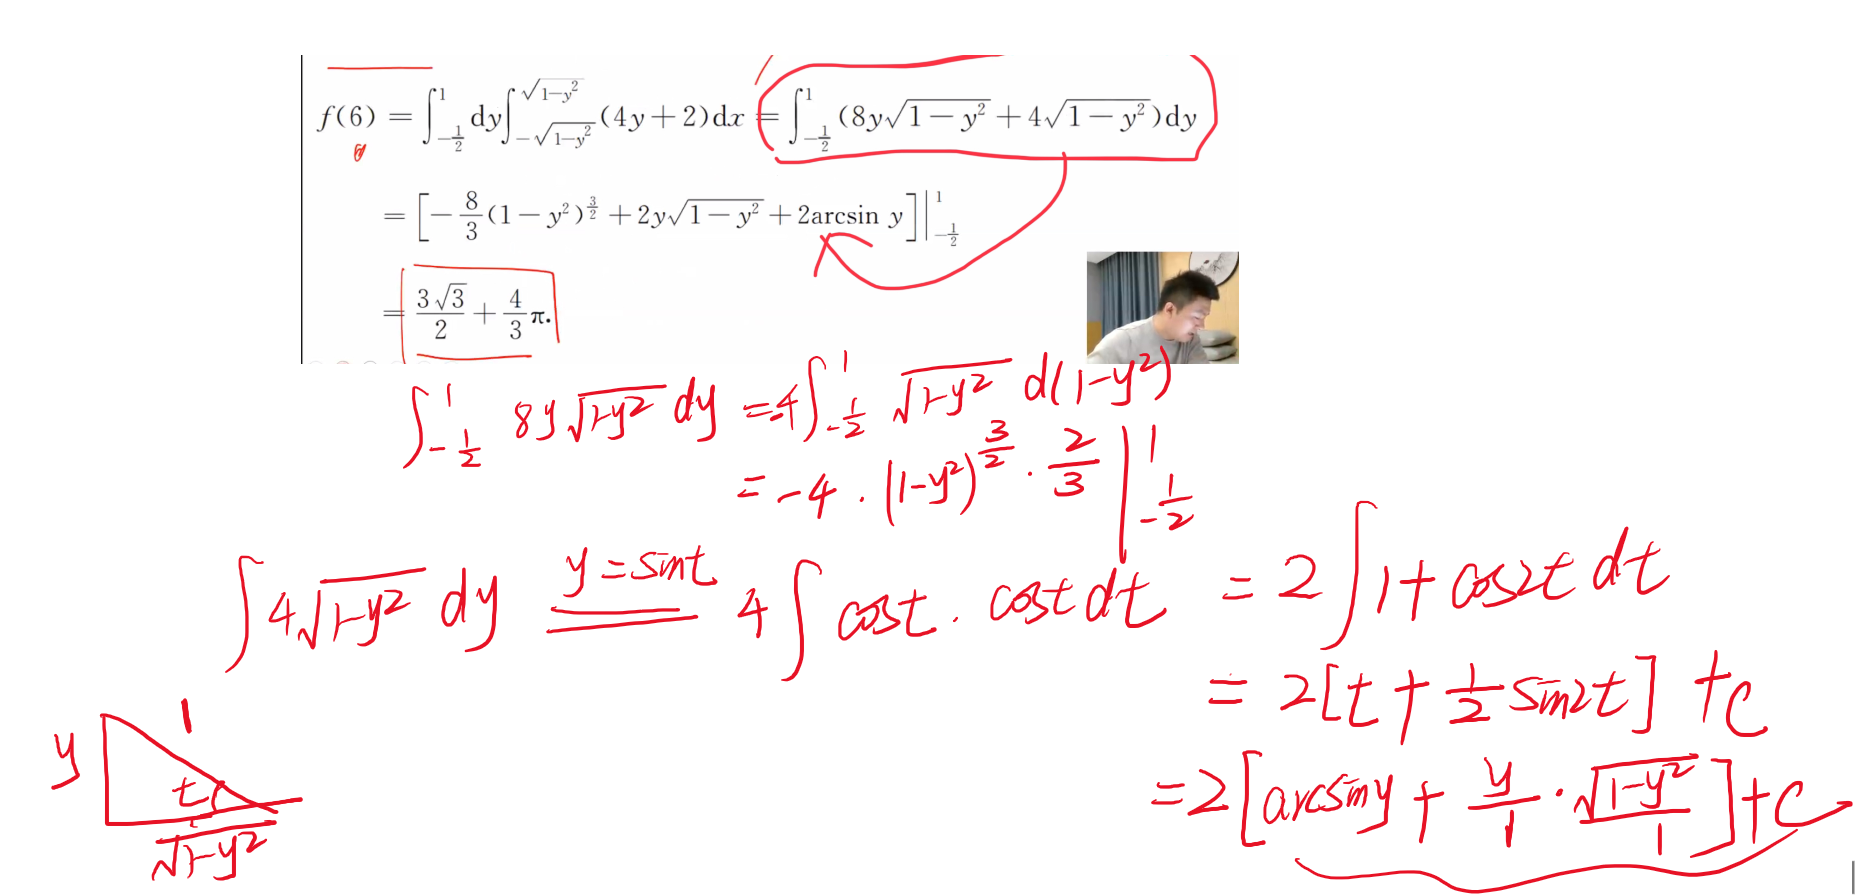 f(6) = ∫_{-1/2}^{1} dy ∫_{-√(1-y²)}^{√(1-y²)} (4y+2)dx = ∫_{-1/2}^{1} (8y√(1-y²) + 4√(1-y²))dy
= [-8/3 (1-y²)^{3/2} + 2y√(1-y²) + 2arcsin y] |_{-1/2}^{1}
= 3√3/2 + 4/3 π.
∫_{-1/2}^{1} 8y√(1-y²) dy = -4∫_{-1/2}^{1} √(1-y²) d(1-y²)
= -4 · (1-y²)^{3/2} · 2/3 |_{-1/2}^{1}
∫4√(1-y²) dy y=sint 4∫cost · cost dt = 2∫1+cos2t dt
= 2[t + 1/2 sin2t] + C
= 2[arcsiny + y/1 · √(1-y²)/1] + C
1
y
t
√(1-y²)